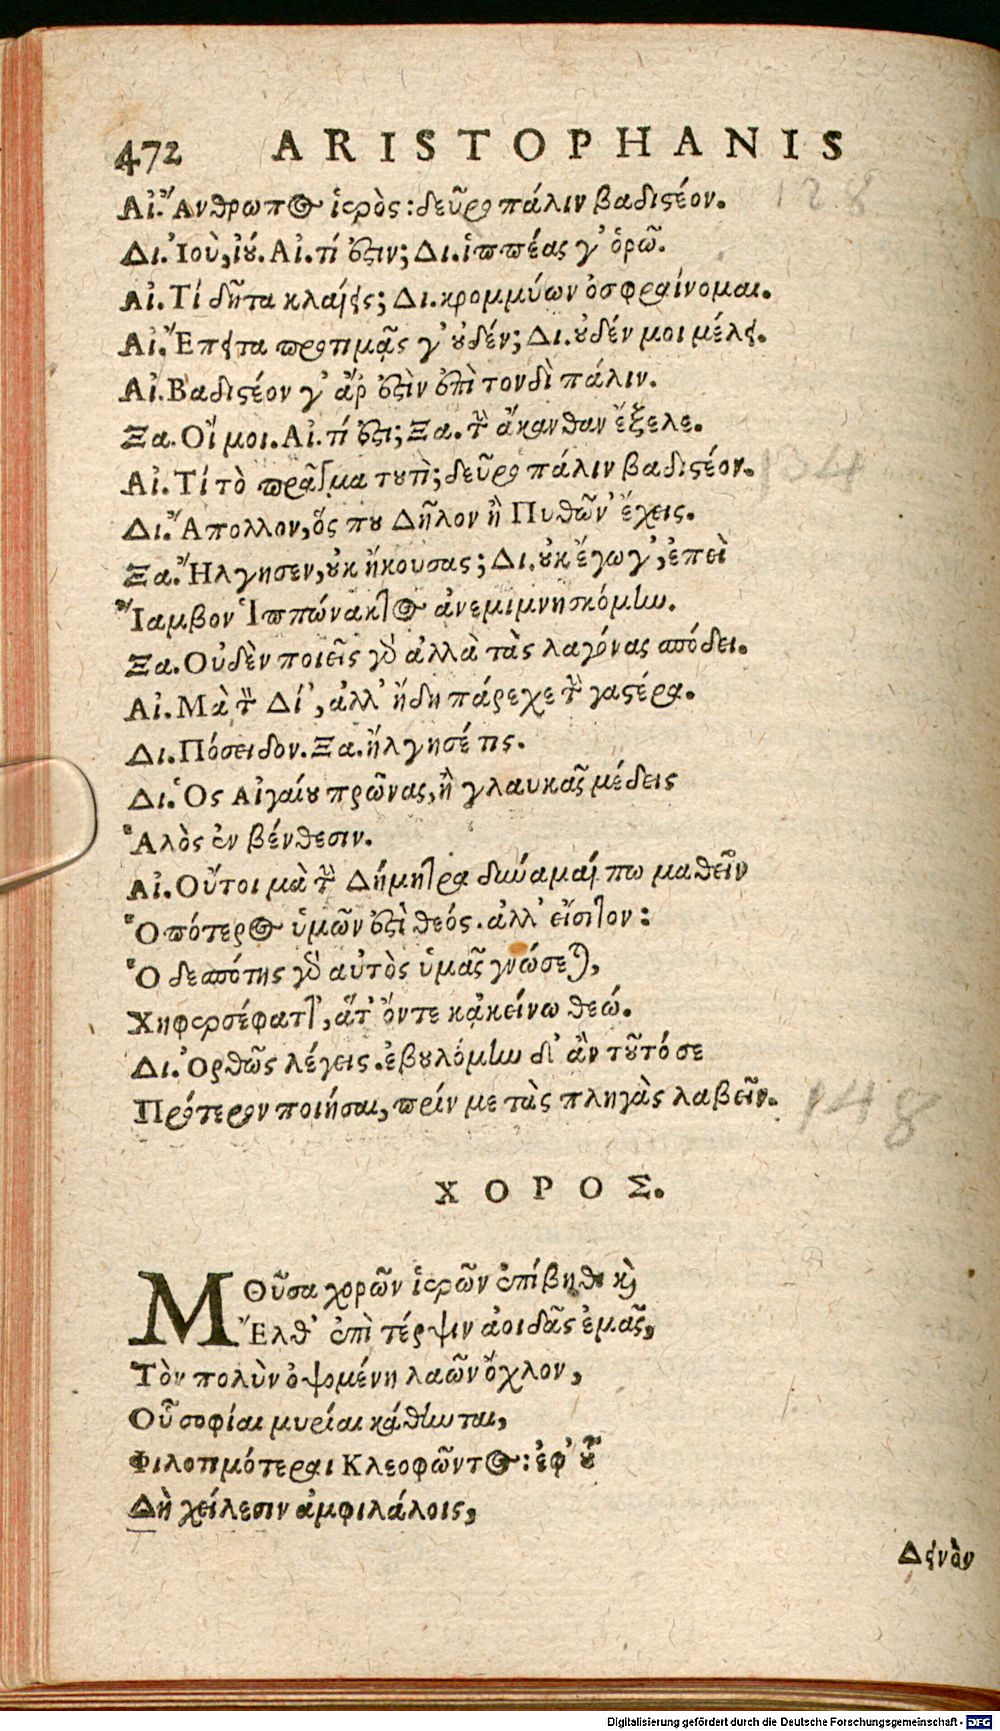 472 ARISTOPHANIS
Αἰ. Ἄνθρωπος ἱερὸς: δεῦρο πάλιν βαδιστέον.
Δι. Ἰοὺ, ἰού. Αἰ. τί ἔστιν; Δι. ἱππέας γ' ὁρῶ.
Αἰ. Τί δῆτα κλαίεις; Δι. κρομμύων ὀσφραίνομαι.
Αἰ. Ἔπειτα προτιμᾷς γ' οὐδέν; Δι. οὐδέν μοι μέλει.
Αἰ. Βαδιστέον γ' ἄρ' ἐστὶν ἐπὶ τονδὶ πάλιν.
Ξα. Οἴ μοι. Αἰ. τί ἔστι; Ξα. τὴν ἄκανθαν ἔξελε.
Αἰ. Τί τὸ πρᾶγμα τουτὶ; δεῦρο πάλιν βαδιστέον.
Δι. Ἄπολλον, ὅς που Δῆλον ἢ Πυθῶν' ἔχεις.
Ξα. Ἤλγησεν, οὐκ ἤκουσας; Δι. οὐκ ἔγωγ', ἐπεὶ
Ἴαμβον Ἱππώνακτος ἀνεμιμνησκόμην.
Ξα. Οὐδὲν ποιεῖς γὰρ ἀλλὰ τὰς λαγόνας σπόδει.
Αἰ. Μὰ τὸν Δί', ἀλλ' ἤδη πάρεχε τὴν γαστέρα.
Δι. Πόσειδον. Ξα. ἤλγησέ τις.
Δι. Ὃς Αἰγαίου πρῶνας, ἢ γλαυκᾶς μέδεις
Ἁλὸς ἐν βένθεσιν.
Αἰ. Οὔτοι μὰ τὴν Δήμητρα δύναμαί πω μαθεῖν
Ὁπότερος ὑμῶν ἐστὶ θεός. ἀλλ' εἴσιτον:
Ὁ δεσπότης γὰρ αὐτὸς ὑμᾶς γνώσεται,
Χηφερσέφατθ', ἅτ' ὄντε κᾀκείνω θεώ.
Δι. Ὀρθῶς λέγεις. ἐβουλόμην δ' ἂν τοῦτό σε
Πρότερον ποιήσαι, πρίν με τὰς πληγὰς λαβεῖν.
ΧΟΡΟΣ.
ΜΟῦσα χορῶν ἱερῶν ἐπίβηθι καὶ
Ἔλθ' ἐπὶ τέρψιν ἀοιδᾶς ἐμᾶς,
Τὸν πολὺν ὀψομένη λαῶν ὄχλον,
Οὗ σοφίαι μυρίαι κάθηνται,
Φιλοτιμότεραι Κλεοφῶντος: ἐφ' οὗ
Δὴ χείλεσιν ἀμφιλάλοις,
Δεινὸν
128
134
148
Digitalisierung gefördert durch die Deutsche Forschungsgemeinschaft - DFG